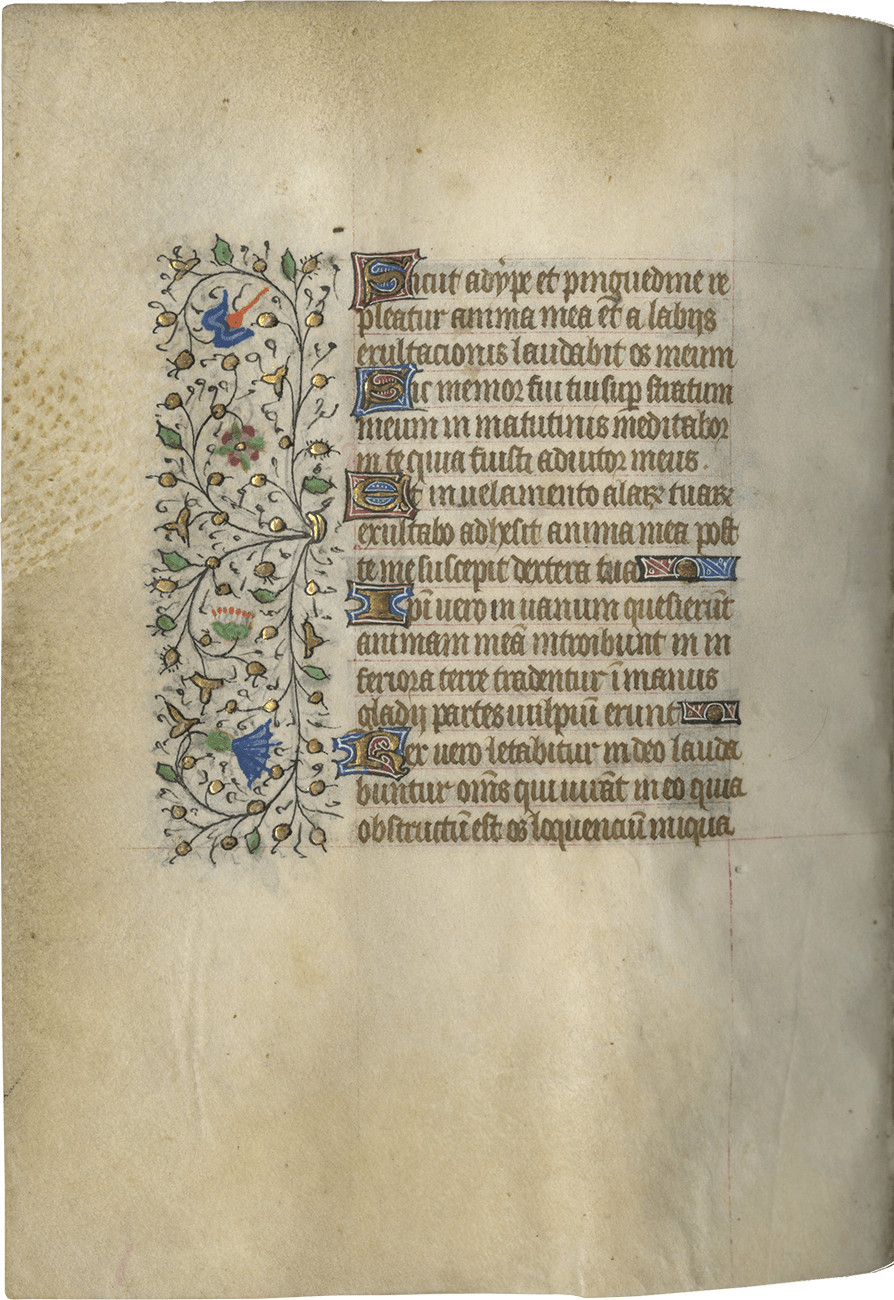 Sicut adype et pinguedine re
pleatur anima mea et̄ a labijs
exultacionis laudabit os meum
Sic memor fui tui suꝑ stratum
meum in matutinis meditabor
in te quia fuisti adiutor meus.
Et in uelamento alarꝝ tuarꝝ
exultabo adhesit anima mea post
te me suscepit dextera tua
Ipi̅ uero in uanum quesierūt
animam meā introibunt in in
feriora terre tradentur ī manus
gladij partes uulpiū erunt
Rex uero letabitur in deo lauda
buntur om̄s qui iurāt in eo quia
obstructū est os loquenciū iniqua